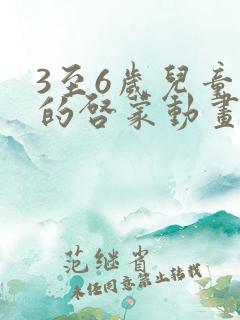 3至6歲兒童
的啓蒙動畫
范继省
未经同意禁止转载